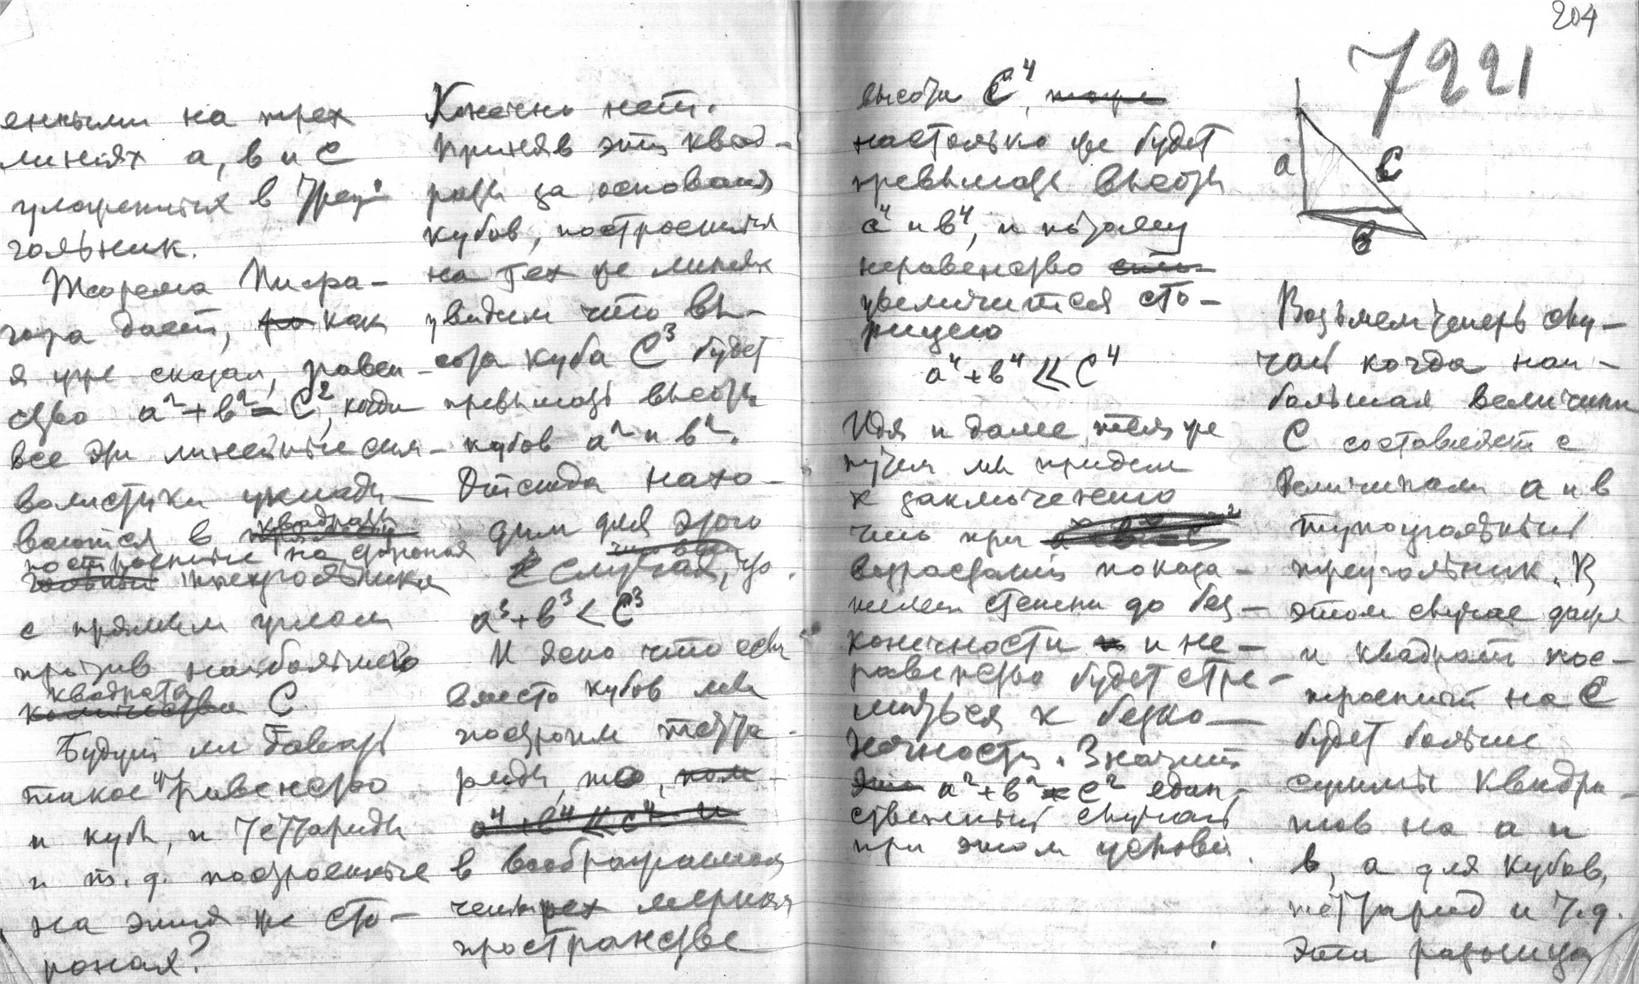 енными на трех
линиях a, в и C
уложенных в Треу-
гольник.
Теорема Пифа-
гора дает, как
я уже сказал, равен-
ство a²+в²=C², когда
все эти линейные сим-
волистики уклады-
ваются в квадраты
построенные на сторонах
треугольника
с прямым углом
против наибольшего
квадрата C.
Будут ли давать
такое равенство
и кубы, и Теттариды
и т.д. построенные
на этих же сто-
ронах?
Конечно нет.
Приняв эти квад-
раты за основания
кубов, построенных
на тех же линиях
увидим что вы-
сота куба C³ будет
превышать высоты
кубов a² и в².
Отсюда нахо-
дим для этого
случая, что
a³+в³<C³
И ясно что если
вместо кубов мы
построим тетта-
риды, то,
a⁴+в⁴≪c⁴ и
в воображаемом
четырех мерном
пространстве
204
7221
высота C⁴,
настолько же будет
превышать высоты
c⁴ и в⁴, и потому
неравенство
увеличится сто-
рицею
a⁴+в⁴≪C⁴
Идя и далее тем же
путем мы придем
к заключению
что при
возрастании показа-
телей степени до без-
конечности и не-
равенство будет стре-
миться к безко-
нечности. Значит
a²+в²=c² един-
ственный случай
при этом условии.
a
C
C
Возьмем теперь слу-
чай когда наи-
большая величина
C составляет с
величинами a и в
тупоугольный
треугольник. В
этом случае даже
и квадрат пос-
троенный на C
будет больше
суммы квадра-
тов на a и
в, а для кубов,
теттарид и т.д.
эти разница